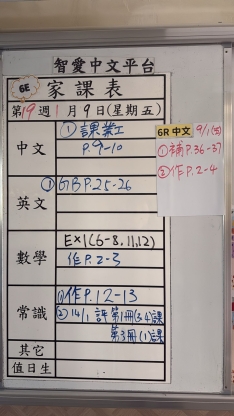 智愛中文平台
6E 家課表
第19週1月9日(星期五)
中文
①課業工
P.9-10
英文
①GB P.25-26
數學
Ex1(6-8,11,12)
作P.2-3
常識
①作P.12-13
②14/1 評 第1冊(3,4)課
第3冊(1)課
其它
值日生
6R 中文 9/1(五)
①補P.36-37
②作P.2-4